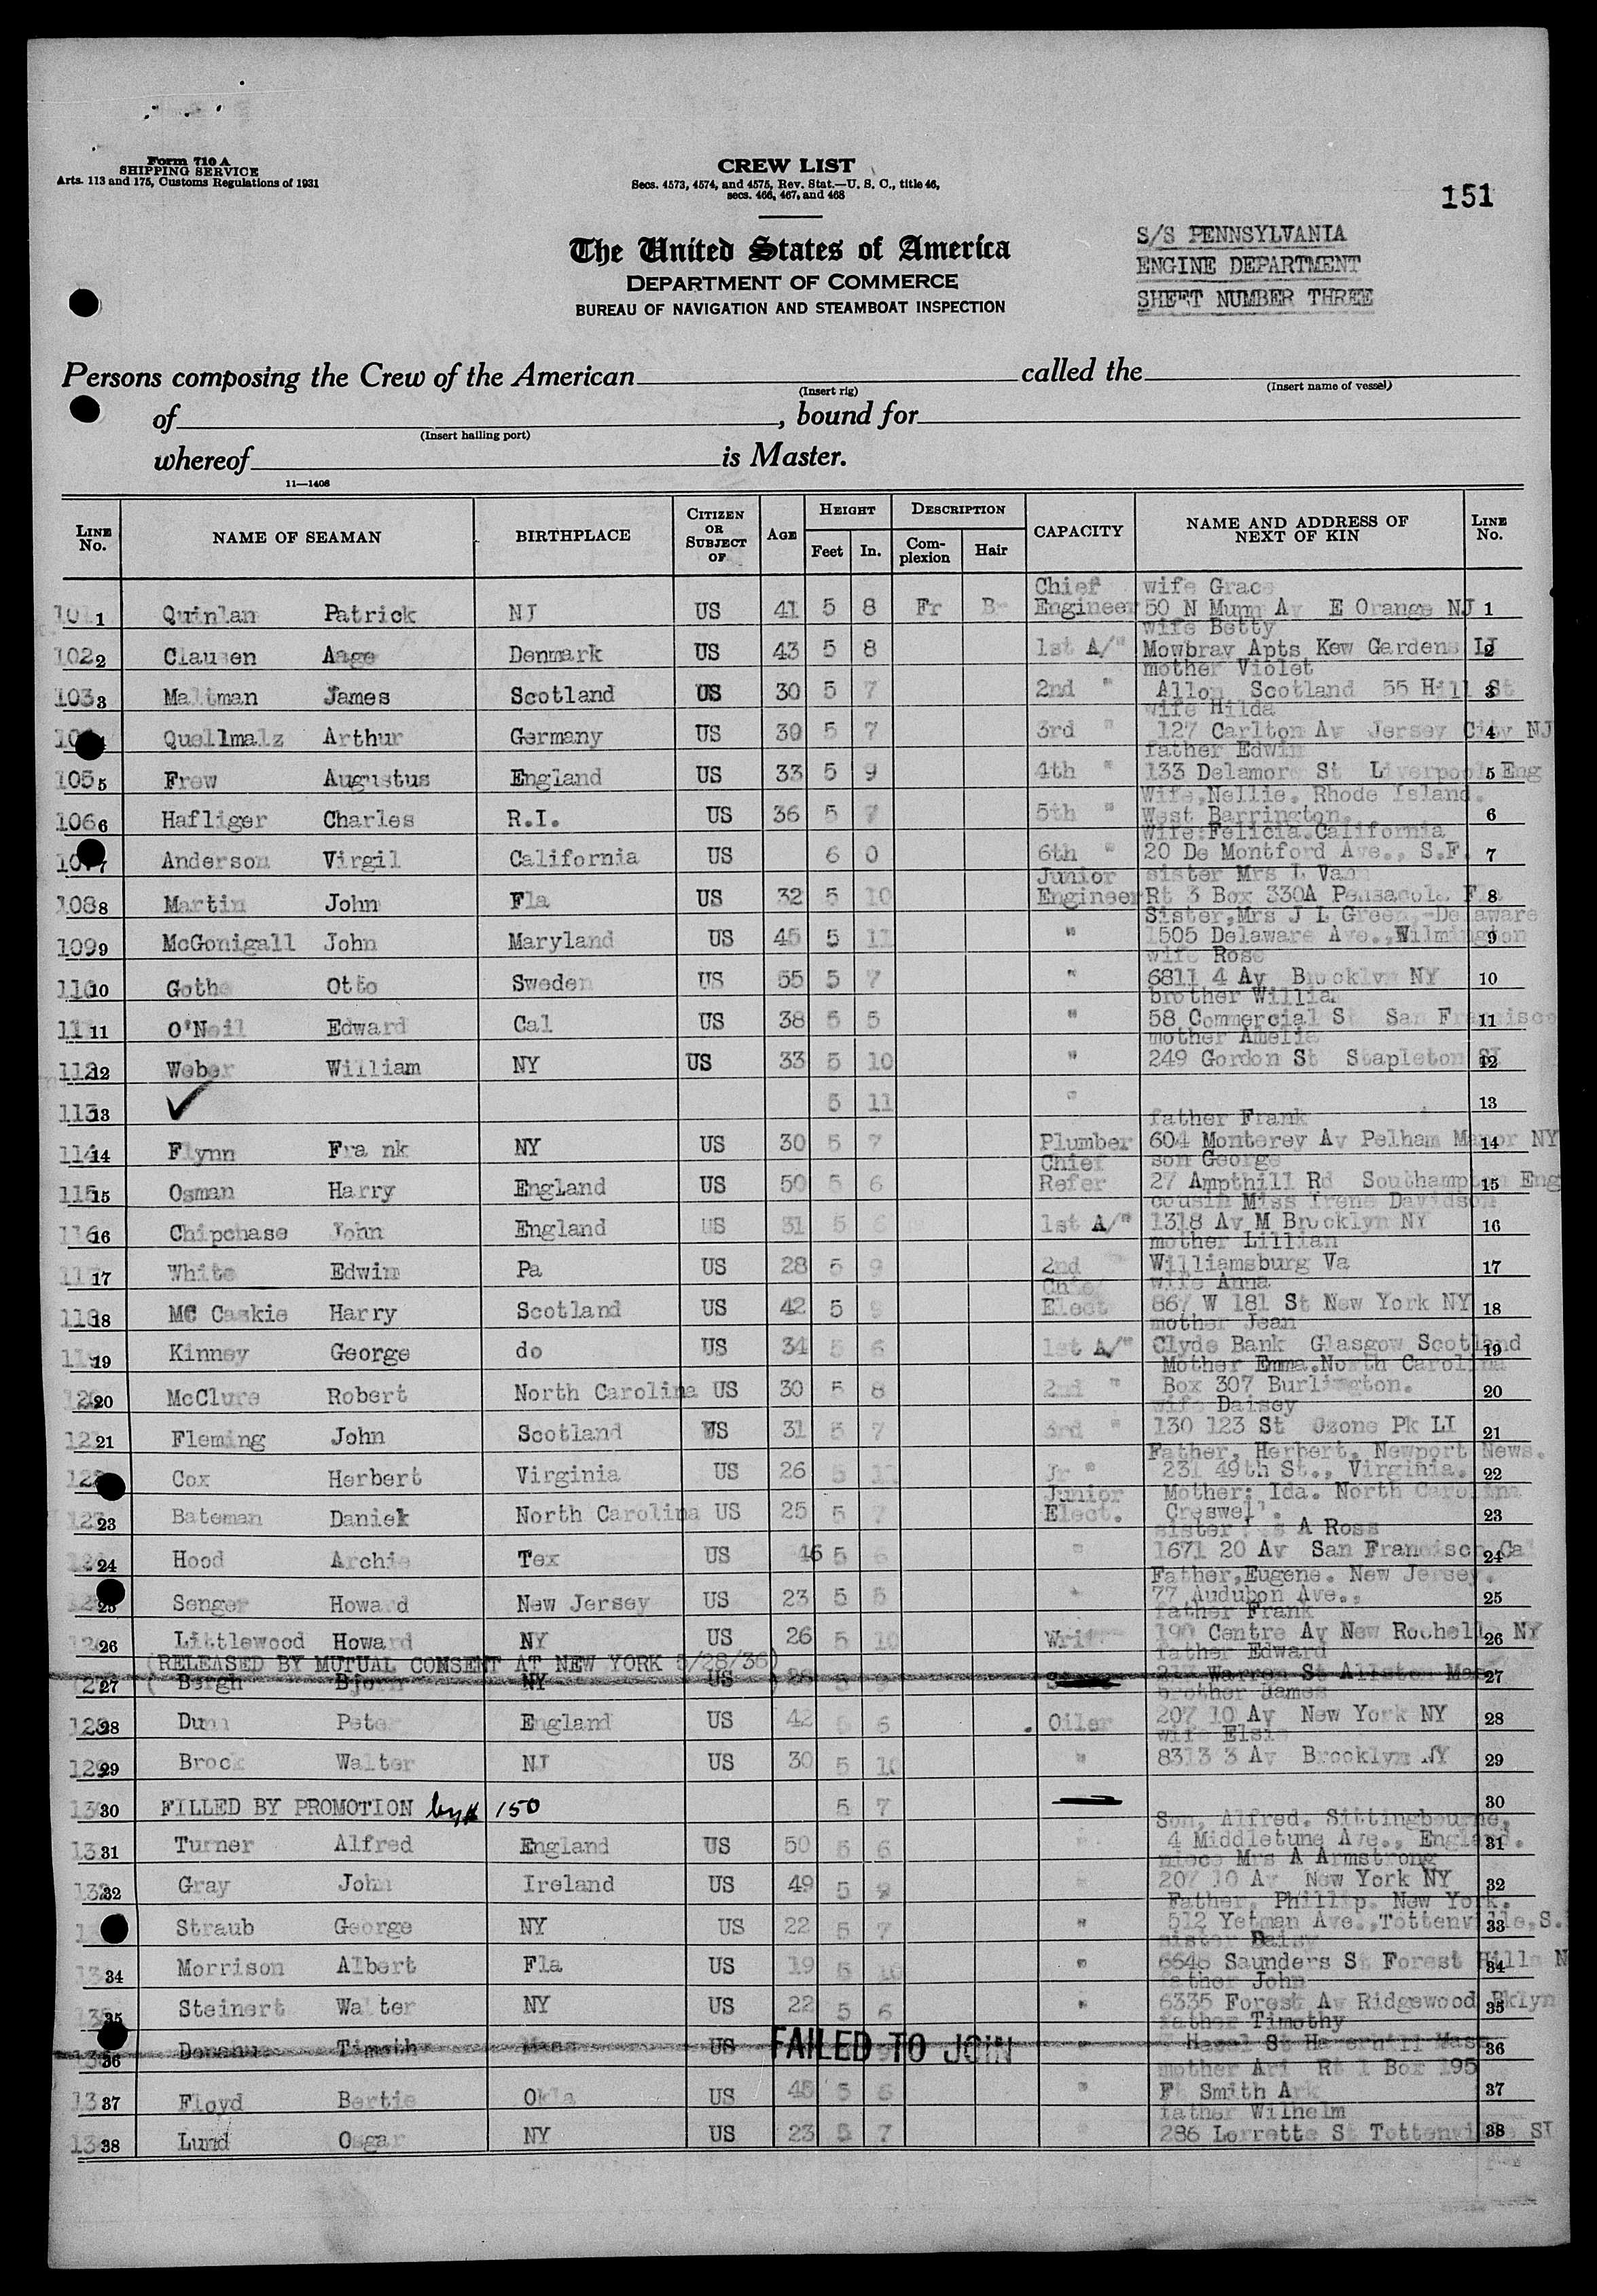 Form 710 A
SHIPPING SERVICE
Arts. 113 and 175, Customs Regulations of 1931
CREW LIST
Secs. 4573, 4574, and 4575, Rev. Stat.—U. S. C., title 46,
secs. 466, 467, and 468
151
The United States of America
DEPARTMENT OF COMMERCE
BUREAU OF NAVIGATION AND STEAMBOAT INSPECTION
S/S PENNSYLVANIA
ENGINE DEPARTMENT
SHEET NUMBER THREE
Persons composing the Crew of the American called the
(Insert rig) (Insert name of vessel)
of , bound for
(Insert hailing port)
whereof is Master.
11—1408
LINE No. NAME OF SEAMAN BIRTHPLACE CITIZEN OR SUBJECT OF AGE HEIGHT Feet In. DESCRIPTION Complexion Hair CAPACITY NAME AND ADDRESS OF NEXT OF KIN LINE No.
Chief wife Grace
101 1 Quinlan Patrick NJ US 41 5 8 Fr Br Engineer 50 N Munn Av E Orange NJ 1
wife Betty
102 2 Clausen Aage Denmark US 43 5 8 1st A/" Mowbray Apts Kew Gardens LI 2
mother Violet
103 3 Maltman James Scotland US 30 5 7 2nd " Allon Scotland 55 Hill St 3
wife Hilda
Quellmalz Arthur Germany US 30 5 7 3rd " 127 Carlton Av Jersey City NJ 4
father Edwin
105 5 Frew Augustus England US 33 5 9 4th " 133 Delamore St Liverpool Eng 5
Wife,Nellie. Rhode Island.
106 6 Hafliger Charles R.I. US 36 5 7 5th " West Barrington. 6
Wife:Felicia.California
107 7 Anderson Virgil California US 6 0 6th " 20 De Montford Ave., S.F. 7
Junior sister Mrs L Vann
108 8 Martin John Fla US 32 5 10 Engineer Rt 3 Box 330A Pensacola Fla 8
Sister,Mrs J L Green,-Delaware
109 9 McGonigall John Maryland US 45 5 11 " 1505 Delaware Ave.,Wilmington 9
wife Rose
110 10 Gothe Otto Sweden US 55 5 7 " 6811 4 Av Brooklyn NY 10
brother William
111 11 O'Neil Edward Cal US 38 5 5 " 58 Commercial St San Francisco 11
mother Amelia
112 12 Weber William NY US 33 5 10 " 249 Gordon St Stapleton SI 12
113 13 ✓ 5 11 " 13
father Frank
114 14 Flynn Fra nk NY US 30 5 7 Plumber 604 Monterey Av Pelham Manor NY 14
Chief son George
115 15 Osman Harry England US 50 5 6 Refer 27 Ampthill Rd Southampton Eng 15
cousin Miss Irene Davidson
116 16 Chipchase John England US 31 5 6 1st A/" 1318 Av M Brooklyn NY 16
mother Lillian
117 17 White Edwin Pa US 28 5 9 2nd Williamsburg Va 17
Chief wife Anna
118 18 MC Caskie Harry Scotland US 42 5 9 Elect 867 W 181 St New York NY 18
mother Jean
119 19 Kinney George do US 34 5 6 1st A/" Clyde Bank Glasgow Scotland 19
Mother Emma.North Carolina
120 20 McClure Robert North Carolina US 30 5 8 2nd " Box 307 Burlington. 20
wife Daisey
121 21 Fleming John Scotland US 31 5 7 3rd " 130 123 St Ozone Pk LI 21
Father, Herbert. Newport News.
122 Cox Herbert Virginia US 26 5 11 Jr " 231 49th St., Virginia. 22
Junior Mother: Ida. North Carolina
123 23 Bateman Daniek North Carolina US 25 5 7 Elect. Creswell. 23
sister A Ross
124 24 Hood Archie Tex US 46 5 6 " 1671 20 Av San Francisco Ca 24
Father,Eugene. New Jersey.
25 Senger Howard New Jersey US 23 5 5 " 77 Audubon Ave., 25
father Frank
126 26 Littlewood Howard NY US 26 5 10 190 Centre Av New Rochell NY 26
(RELEASED BY MUTUAL CONSENT AT NEW YORK 5/28/36) father Edward
127 27 ( Bergh Bjorn NY US Warren St Allston Mass 27
brother James
128 28 Dunn Peter England US 42 5 6 . Oiler 207 10 Av New York NY 28
wife Elsie
129 29 Brock Walter NJ US 30 5 10 " 8313 3 Av Brooklyn NY 29
130 30 FILLED BY PROMOTION by # 150 5 7 30
Son, Alfred. Sittingbourne,
131 31 Turner Alfred England US 50 5 6 " 4 Middletune Ave., England. 31
niece Mrs A Armstrong
132 32 Gray John Ireland US 49 5 9 " 207 10 Av New York NY 32
Father, Phillip. New York.
Straub George NY US 22 5 7 " 512 Yetman Ave.,Tottenville,S. 33
sister Daisy
134 34 Morrison Albert Fla US 19 5 10 " 6648 Saunders St Forest Hills N 34
father John
135 35 Steinert Walter NY US 22 5 6 " 6335 Forest Av Ridgewood Bklyn 35
father Timothy
36 Donahue Timoth Mass US FAILED TO JOIN " Hazel St Haverhill Mass 36
mother Ari Rt 1 Box 195
137 37 Floyd Bertie Okla US 45 5 6 " Ft Smith Ark 37
father Wilhelm
138 38 Lund Osgar NY US 23 5 7 286 Lorrette St Tottenville SI 38